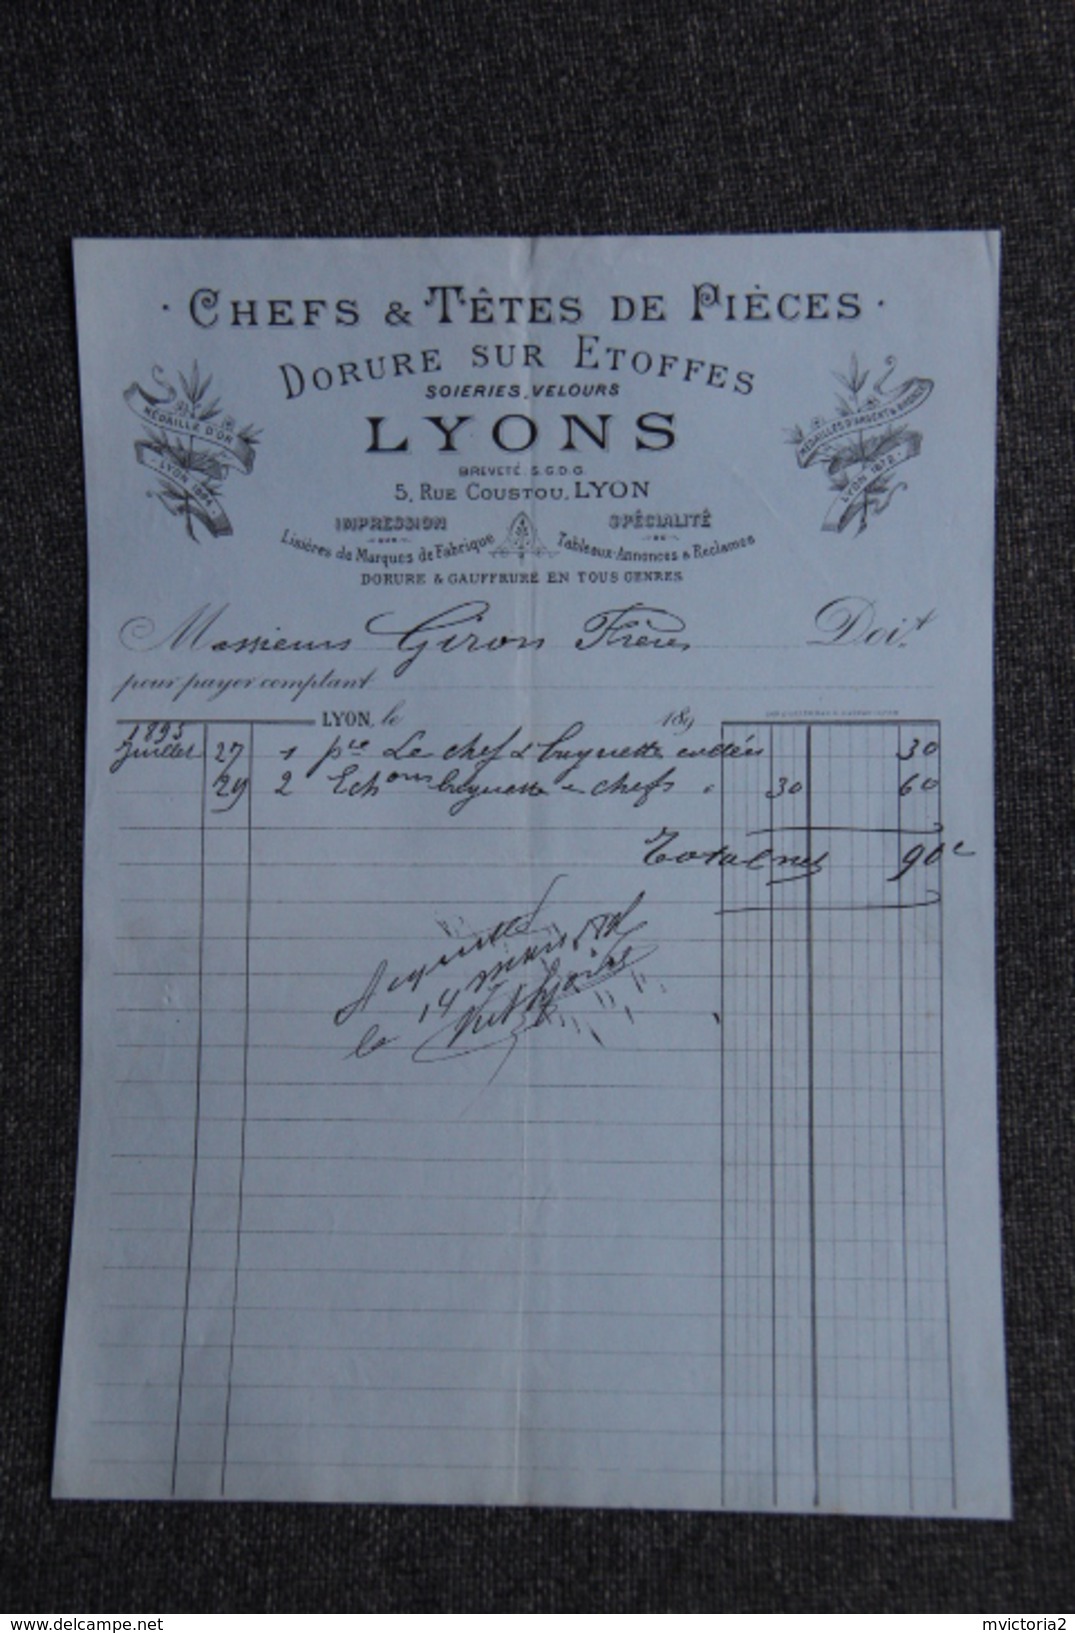 · CHEFS & TÊTES DE PIÈCES ·
DORURE SUR ETOFFES
SOIERIES, VELOURS
LYONS
BREVETÉ S.G.D.G.
5, RUE COUSTOU, LYON
MÉDAILLE D'OR
LYON 1894
MÉDAILLES D'ARGENT & BRONZE
LYON 1872
IMPRESSION
SUR
Lisières de Marques de Fabrique
SPÉCIALITÉ
DE
Tableaux-Annonces & Reclames
DORURE & GAUFFRURE EN TOUS GENRES
Messieurs Giron Frères Doit
pour payer comptant
LYON, le 189
1895
Juillet 27 1 pce Le chef & baguette 30
29 2 Echons baguette & chefs 30 60
Total net 90c
Acquitté
le 14
delcampe.net
mvictoria2